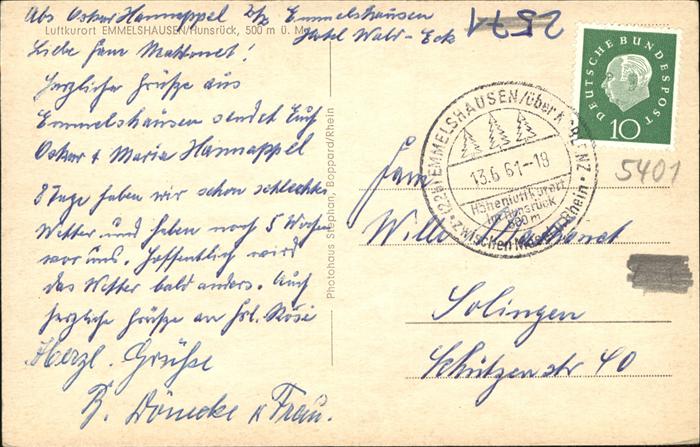 Abs Oskar Hannappel z/z Emmelshausen
Hotel Wald-Eck
Luftkurort EMMELSHAUSEN/Hunsrück, 500 m ü. M.
Liebe Fam Mattonet!
Herzliche Grüße aus
Emmelshausen sendet Euch
Oskar + Maria Hannappel
8 Tage haben wir schon schlechtes
Wetter und haben noch 5 Wochen
vor uns. Hoffentlich wird
das Wetter bald anders. Auch
herzliche Grüße an Frl. Rösi
Herzl. Grüße
B. Dönecke u Frau.
Photohaus Stephan, Boppard/Rhein
2571
DEUTSCHE BUNDESPOST
10
(22b) EMMELSHAUSEN/über KOBLENZ
13.6.61-18
Höhenluftkurort
im Hunsrück
500m
zwischen Mosel u. Rhein
5401
Fam
Willi Mattonet
Solingen
Schützenstr 40